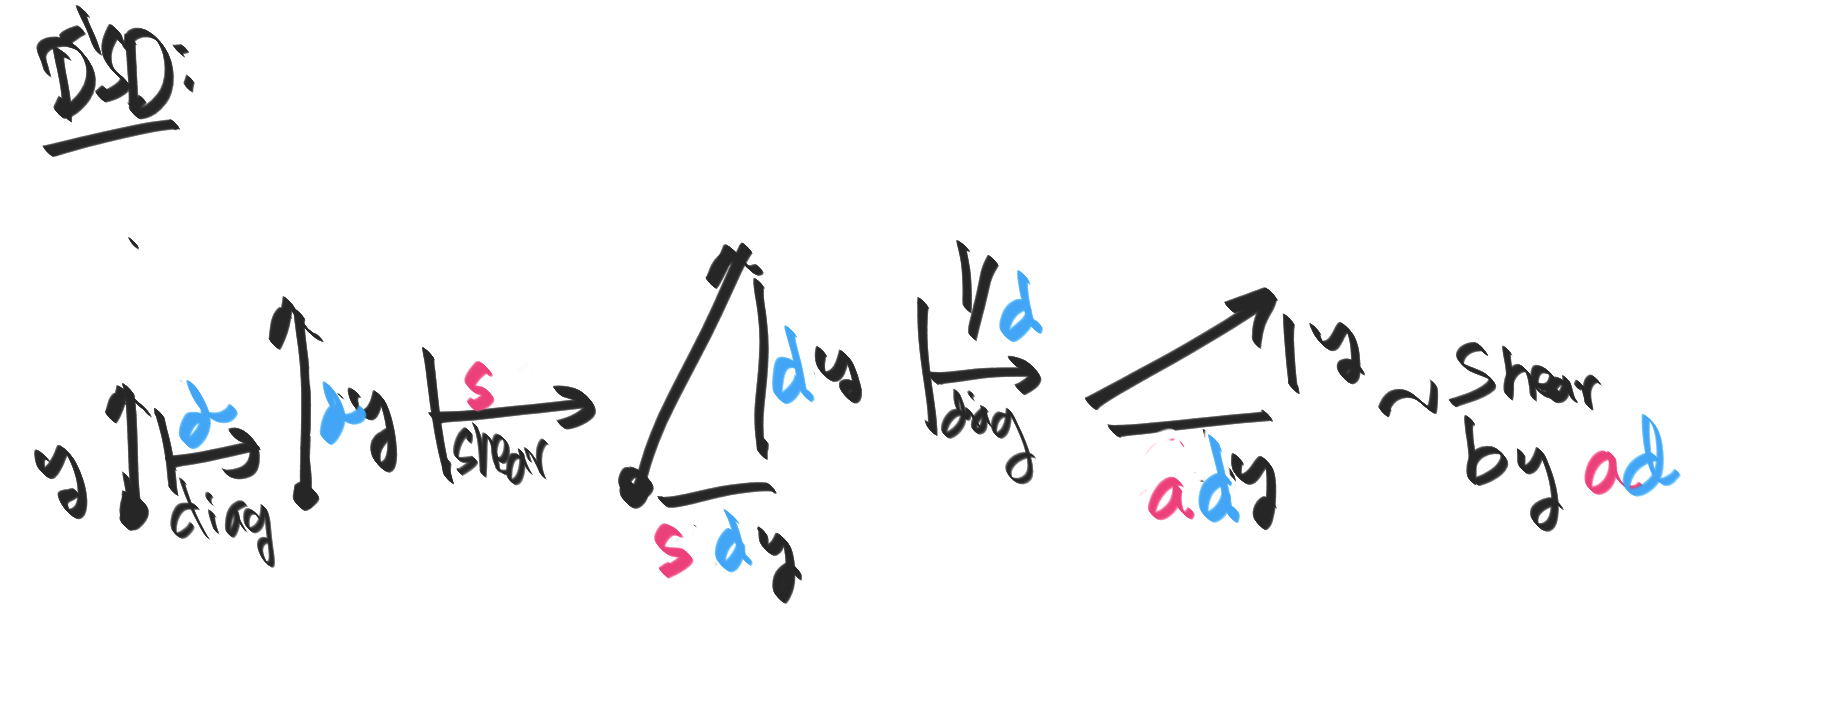 D'SD:
y d diag dy s shear dy s dy 1/d diag y a dy ~ shear
by ad